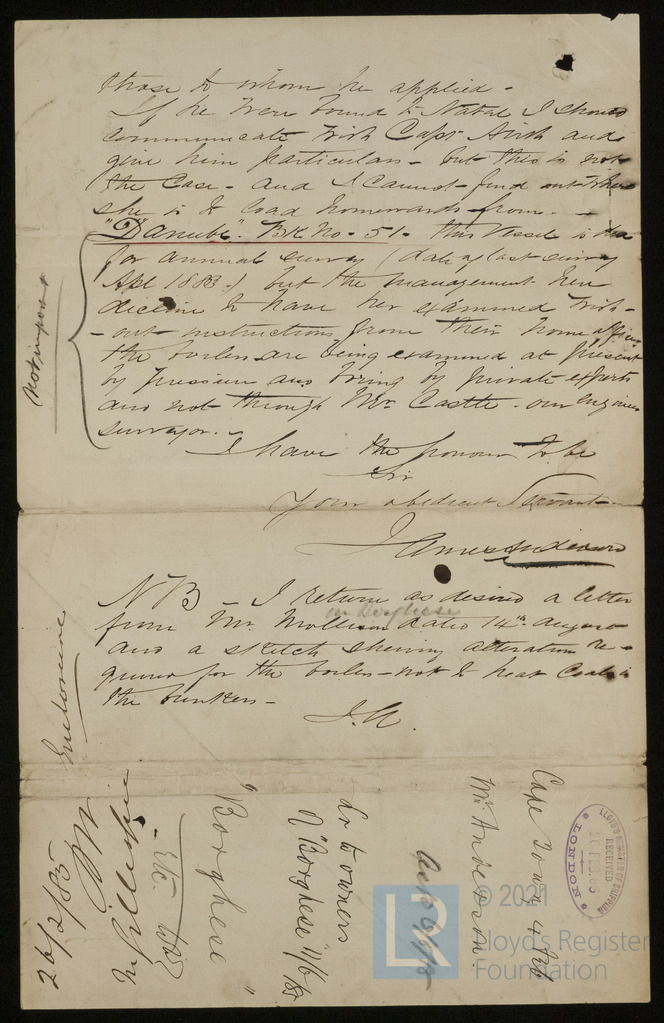 those to whom he applied -
If he were bound to Natal I should
communicate with Capt Airth and
give him particulars - but this is not
the Case - and I cannot find out where
she is to load homewards from. -
"Danube" BK No - 51 - this Vessel is due
for annual survey (date of last survey
Apl 1883.) but the management here
decline to have her examined with-
- out instructions from their home office
the boilers are being examined at present
by pressure and boring by private experts
and not through Mr Castle - our Engineer
Surveyor. -
not imposed
I have the honour to be
Sir
Your obedient Servant
James Anderson
NB - I return as desired a letter
re Borghese
from Mr Mollison dated 14th August
and a sketch shewing alteration re-
quired for the boilers - not to heat Coals in
the bunkers -
J.A.
Enclosure
26/2/85
"Borghese"
Lr to owners
of "Borghese" 11/6/85
Mr Anderson
Cape Town 4 Feb
LLOYD'S REGISTER OF SHIPPING
RECEIVED
26 FEB 85
LONDON
LR
© 2021
Lloyd's Register
Foundation